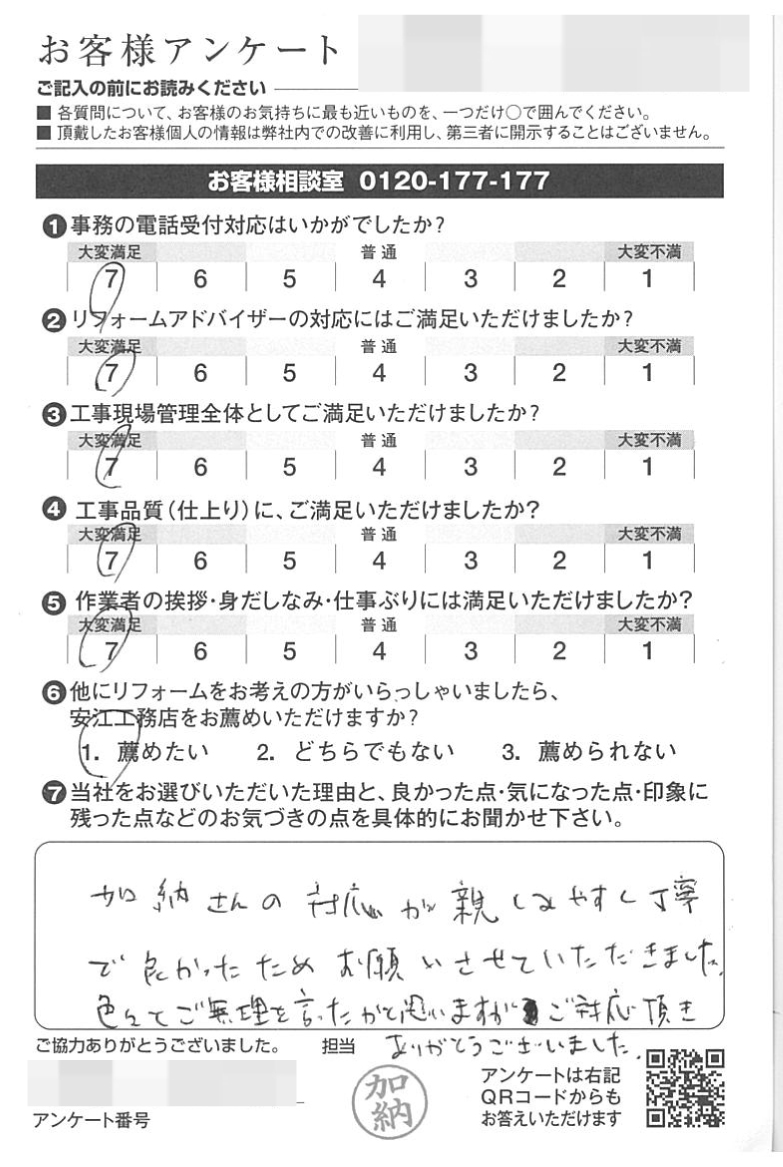 お客様アンケート
ご記入の前にお読みください
■ 各質問について、お客様のお気持ちに最も近いものを、一つだけ○で囲んでください。
■ 頂戴したお客様個人の情報は弊社内での改善に利用し、第三者に開示することはございません。
お客様相談室 0120-177-177
❶事務の電話受付対応はいかがでしたか?
大変満足 普通 大変不満
7 6 5 4 3 2 1
❷リフォームアドバイザーの対応にはご満足いただけましたか?
大変満足 普通 大変不満
7 6 5 4 3 2 1
❸工事現場管理全体としてご満足いただけましたか?
大変満足 普通 大変不満
7 6 5 4 3 2 1
❹ 工事品質(仕上り)に、ご満足いただけましたか?
大変満足 普通 大変不満
7 6 5 4 3 2 1
❺ 作業者の挨拶・身だしなみ・仕事ぶりには満足いただけましたか?
大変満足 普通 大変不満
7 6 5 4 3 2 1
❻他にリフォームをお考えの方がいらっしゃいましたら、
安江工務店をお薦めいただけますか?
1. 薦めたい 2. どちらでもない 3. 薦められない
❼当社をお選びいただいた理由と、良かった点・気になった点・印象に
残った点などのお気づきの点を具体的にお聞かせ下さい。
加納さんの対応が親しみやすく丁寧
で良かったためお願いさせていただきました。
色々とご無理を言ったかと思いますがご対応頂き
ありがとうございました。
ご協力ありがとうございました。 担当
加納
アンケートは右記
QRコードからも
お答えいただけます
アンケート番号